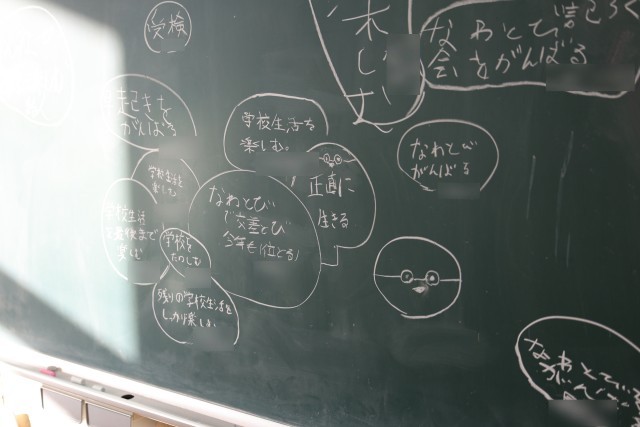 受検
なわとび
会をがんばる
起きを
がんばる
学校生活を
楽しむ。
なわとび
がんばる
学校生活を
楽しむ
正直に
生きる
なわとび
で交差とび
今年も1位とる!
学校生活
最後まで
楽しむ
学校を
たのしむ
残りの学校生活を
しっかり楽しむ
なわとび